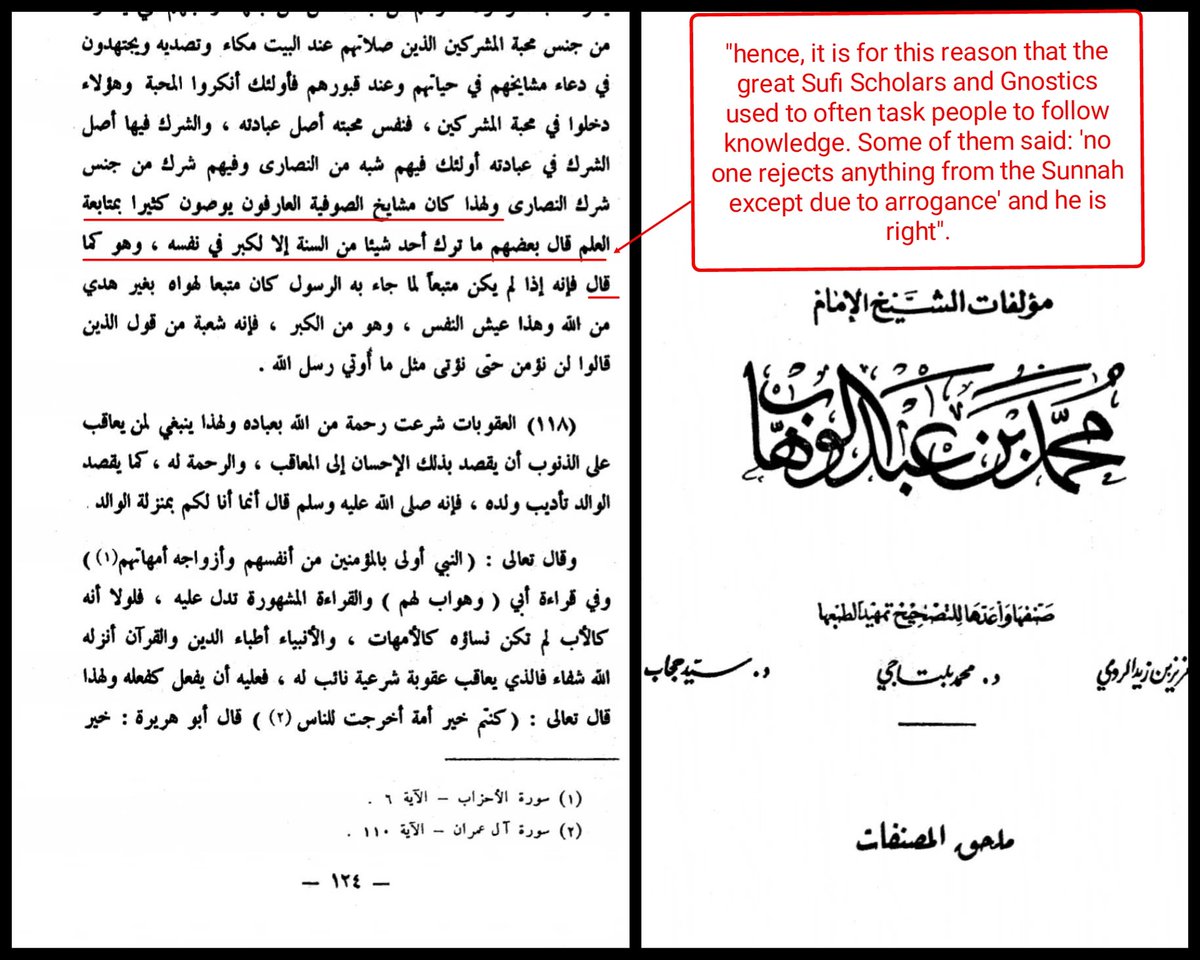 من جنس محبة المشركين الذين صلاتهم عند البيت مكاء وتصديه ويجتهدون
في دعاء مشايخهم في حياتهم وعند قبورهم فأولئك أنكروا المحبة وهؤلاء
دخلوا في محبة المشركين ، فنفس محبته أصل عبادته ، والشرك فيها أصل
الشرك في عبادته أولئك فيهم شبه من النصارى وفيهم شرك من جنس
شرك النصارى ولهذا كان مشايخ الصوفية العارفون يوصون كثيرا بمتابعة
العلم قال بعضهم ما ترك أحد شيئا من السنة إلا لكبر في نفسه ، وهو كما
قال فإنه إذا لم يكن متبعاً لما جاء به الرسول كان متبعا لهواه بغير هدي
من الله وهذا عيش النفس ، وهو من الكبر ، فإنه شعبة من قول الذين
قالوا لن نؤمن حتّى نؤتى مثل ما أُوتي رسل الله .
(١١٨) العقوبات شرعت رحمة من الله بعباده ولهذا ينبغي لمن يعاقب
على الذنوب أن يقصد بذلك الإحسان إلى المعاقب ، والرحمة له ، كما يقصد
الوالد تأديب ولده ، فإنه صلى الله عليه وسلم قال أنما أنا لكم بمنزلة الوالد
وقال تعالى : ( النبي أولى بالمؤمنين من أنفسهم وأزواجه أمهاتهم(١) )
وفي قراءة أبي ( وهواب لهم ) والقراءة المشهورة تدل عليه ، فلولا أنه
كالأب لم تكن نساؤه كالأمهات ، والأنبياء أطباء الدين والقرآن أنزله
الله شفاء فالذي يعاقب عقوبة شرعية نائب له ، فعليه أن يفعل كفعله ولهذا
قال تعالى : ( كنتم خير أمة أخرجت للناس (٢) ) قال أبو هريرة : خير
(١) سورة الأحزاب – الآية ٦ .
(٢) سورة آل عمران – الآية ١١٠ .
— ١٢٤ —
"hence, it is for this reason that the
great Sufi Scholars and Gnostics
used to often task people to follow
knowledge. Some of them said: 'no
one rejects anything from the Sunnah
except due to arrogance' and he is
right".
مؤلفات الشَّيْخ الإمام
محمَّد بن عبد الوهاب
صنفها وأعدها للتصحيح تمهيداً لطبعها
بن زيد الرومي د. محمد بلتاجي د. سيد حجاب
ملحق المصنفات